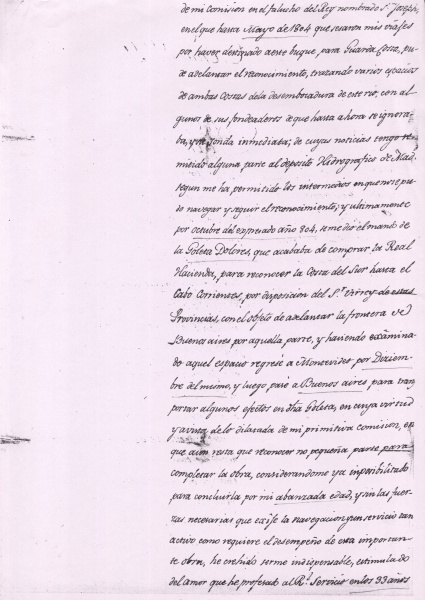 de mi Comision en el falucho del Rey nombrado Sn. Joseph,
en el que hasta Mayo de 1804 que sesaron mis viajes
por haver destinado a este buque, para Guarda Costa, pu-
de adelantar el reconocimiento, trazando varios espacios
de ambas Costas de la desembocadura de este rio, con al
gunos de sus fondeaderos de que hasta ahora se ignora-
ba, y su sonda inmediata; de cuyas noticias tengo re-
mitido alguna parte al deposito Hidrografico de Mad.
segun me ha permitido los intermedios en que no se pu-
do navegar y seguir el reconocimiento; y ultimamente
por octubre del expresado año 804, se me dió el mando de
la Goleta Dolores, que acababa de comprar la Real
Hacienda, para reconocer la Costa del Sur hasta el
Cabo Corrientes, por disposicion del Sr. Virrey de estas
Provincias, con el objeto de adelantar la frontera de
Buenos aires por aquella parte, y haviendo examina-
do aquel espacio regresé a Montevideo por Diziem-
bre del mismo, y luego pasé a Buenos aires para tran
portar algunos efectos en dha Goleta, en cuya virtud
y a vista de lo dilatado de mi primitiva comision, en
que aun resta que reconocer no pequeña parte para
completar la obra, considerandome ya imposibilitado
para concluirla por mi abanzada edad, y sin las fuer-
zas necesarias que exije la navegacion y un servicio tan
activo como requiere el desempeño de esta importan-
te obra, he crehido serme indispensable, estimulado
del amor que he profesado al Rl. Servicio en los 33 años